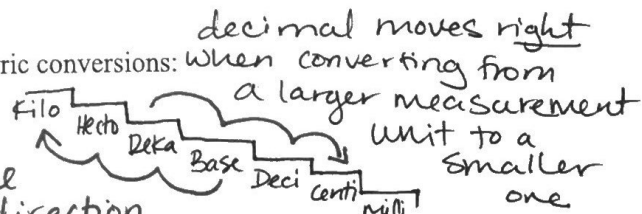 decimal moves right
ric conversions: when converting from
a larger measurement
unit to a
smaller
one
Kilo
Hecto
Deka
Base
Deci
Centi
Milli
direction